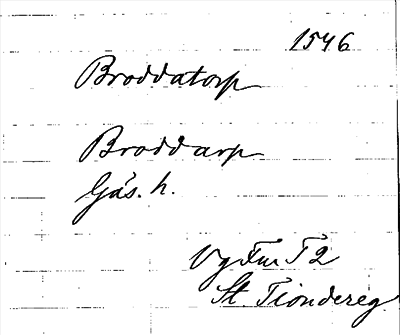 1546
Broddatorp
Broddarp
Gäs. h.
Vg Fur T 2
St. Tiondereg